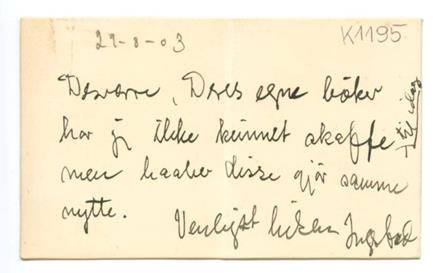 29-8-03
K1195
Desværre, Deres egne bøker
har jeg ikke kunnet skaffe
til idag
men haaber disse gjør samme
nytte.
Venligst hilsen